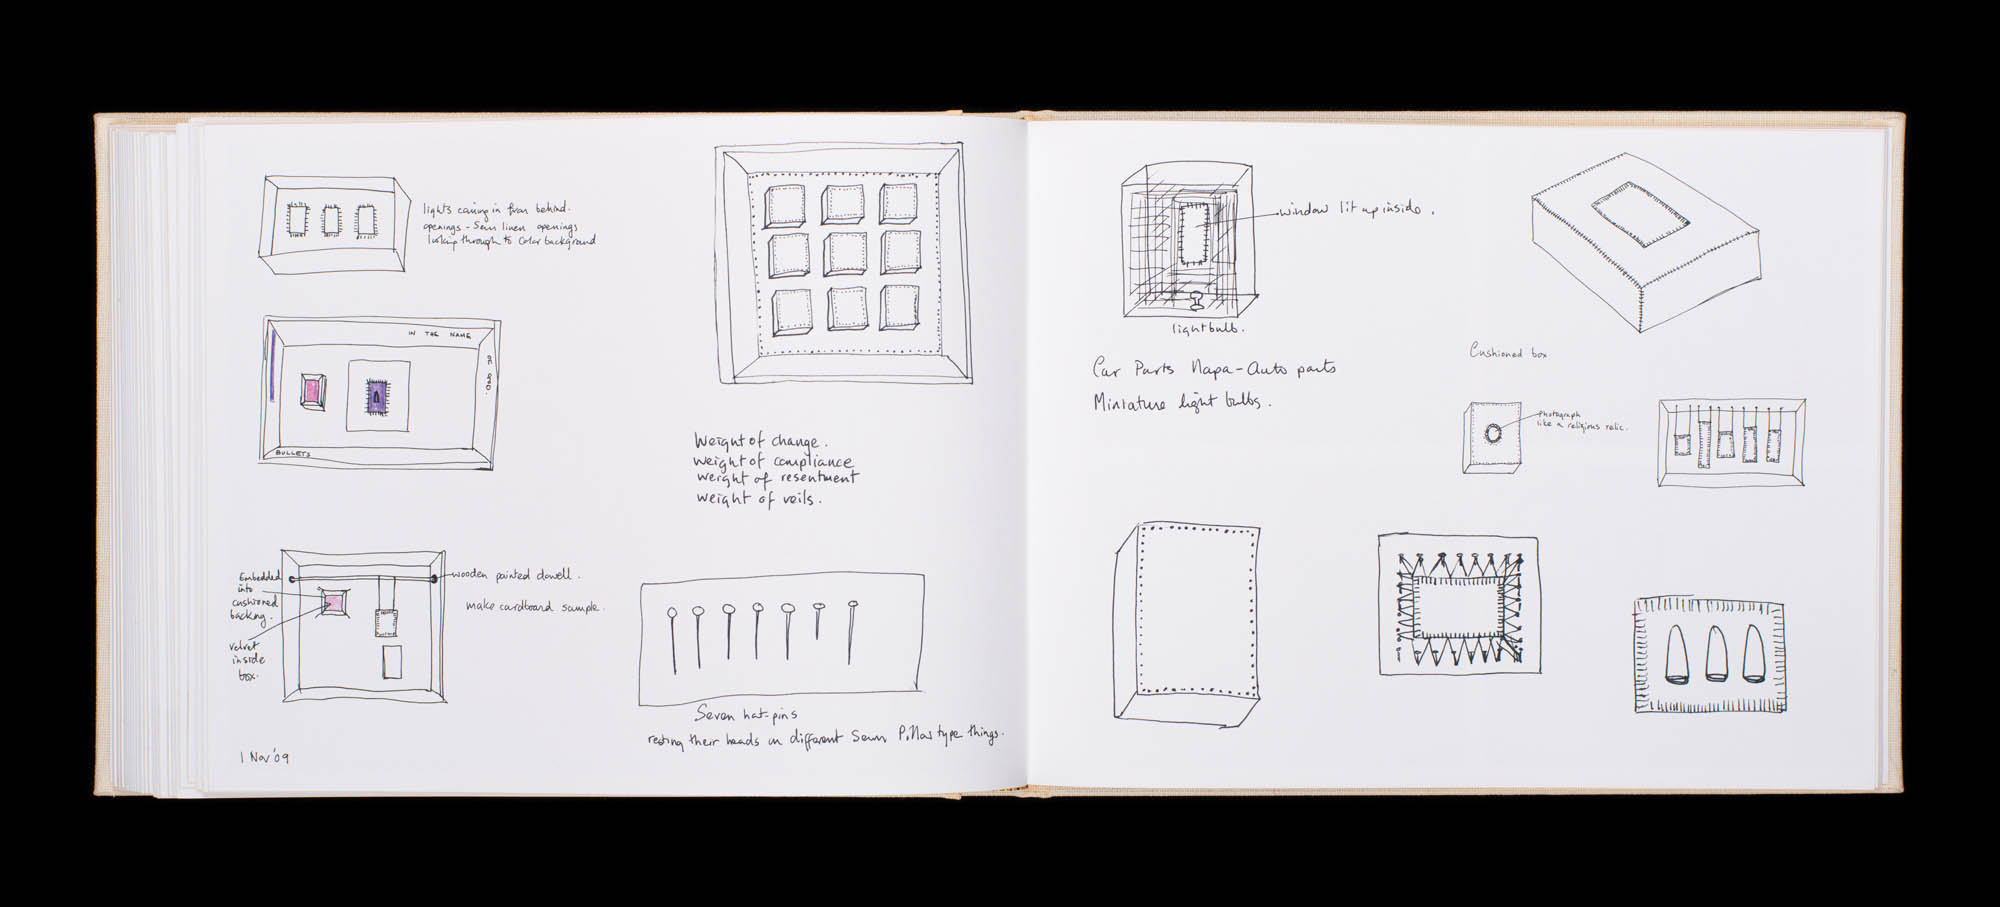 lights coming in from behind.
openings - Sewn linen openings
looking through to color background
IN THE NAME
OF GOD.
BULLETS
Weight of change.
weight of compliance
weight of resentment
weight of veils.
Embedded
into
cushioned
backing.
velvet
inside
box.
wooden painted dowell.
make cardboard sample.
Seven hat-pins
resting their heads on different Sewn Pillar type things.
1 Nov '09
window lit up inside.
lightbulb.
Car Parts Napa-Auto parts
Miniature light bulbs.
Cushioned box
photograph
like a religious relic.